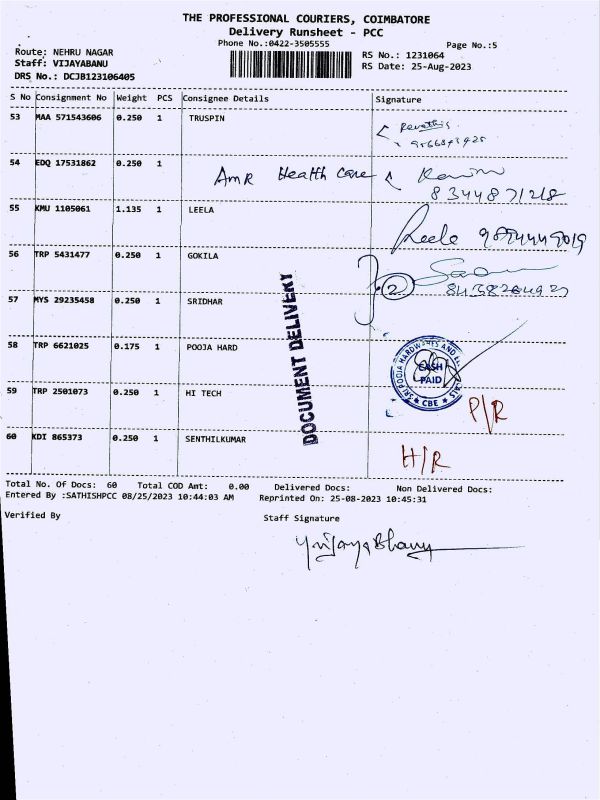 THE PROFESSIONAL COURIERS, COIMBATORE
Delivery Runsheet - PCC
Phone No.:0422-3505555
Page No.:5
Route: NEHRU NAGAR
Staff: VIJAYABANU
DRS No.: DCJB123106405
RS No.: 1231064
RS Date: 25-Aug-2023
S No Consignment No Weight PCS Consignee Details Signature
53 MAA 571543606 0.250 1 TRUSPIN
Revathi
54 EDQ 17531862 0.250 1 AMR Health Care
8344871218
55 KMU 1105061 1.135 1 LEELA
Leele
56 TRP 5431477 0.250 1 GOKILA
2
57 MYS 29235458 0.250 1 SRIDHAR
58 TRP 6621025 0.175 1 POOJA HARD
CASH
PAID
CBE
59 TRP 2501073 0.250 1 HI TECH P/R
60 KDI 865373 0.250 1 SENTHILKUMAR H/R
DOCUMENT DELIVERY
Total No. Of Docs: 60 Total COD Amt: 0.00 Delivered Docs: Non Delivered Docs:
Entered By :SATHISHPCC 08/25/2023 10:44:03 AM Reprinted On: 25-08-2023 10:45:31
Verified By Staff Signature